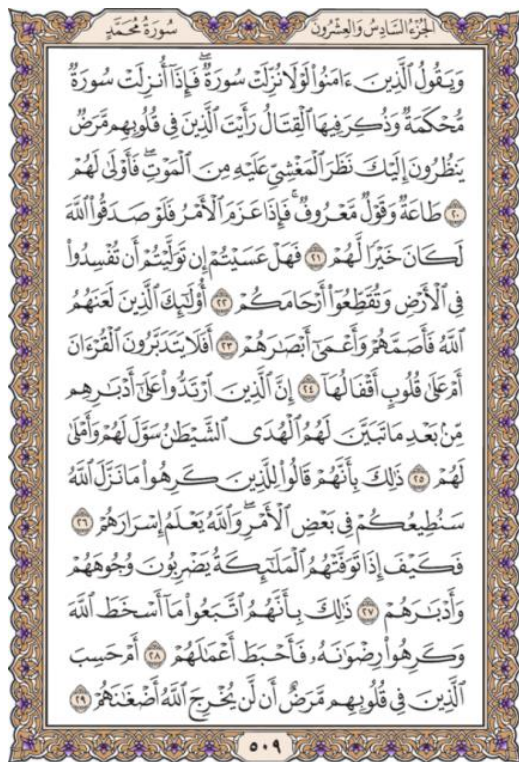 سُورَةُ مُحَمَّدٍ
الجُزْءُ السَّادِسُ وَالعِشْرُونَ
وَيَقُولُ الَّذِينَ ءَامَنُوا۟ لَوْلَا نُزِّلَتْ سُورَةٌ ۖ فَإِذَآ أُنزِلَتْ سُورَةٌ
مُّحْكَمَةٌ وَذُكِرَ فِيهَا الْقِتَالُ رَأَيْتَ الَّذِينَ فِى قُلُوبِهِم مَّرَضٌ
يَنظُرُونَ إِلَيْكَ نَظَرَ الْمَغْشِىِّ عَلَيْهِ مِنَ الْمَوْتِ ۖ فَأَوْلَىٰ لَهُمْ
﴿٢٠﴾ طَاعَةٌ وَقَوْلٌ مَّعْرُوفٌ ۚ فَإِذَا عَزَمَ الْأَمْرُ فَلَوْ صَدَقُوا۟ اللَّهَ
لَكَانَ خَيْرًا لَّهُمْ ﴿٢١﴾ فَهَلْ عَسَيْتُمْ إِن تَوَلَّيْتُمْ أَن تُفْسِدُوا۟
فِى الْأَرْضِ وَتُقَطِّعُوٓا۟ أَرْحَامَكُمْ ﴿٢٢﴾ أُو۟لَٰٓئِكَ الَّذِينَ لَعَنَهُمُ
اللَّهُ فَأَصَمَّهُمْ وَأَعْمَىٰٓ أَبْصَٰرَهُمْ ﴿٢٣﴾ أَفَلَا يَتَدَبَّرُونَ الْقُرْءَانَ
أَمْ عَلَىٰ قُلُوبٍ أَقْفَالُهَآ ﴿٢٤﴾ إِنَّ الَّذِينَ ارْتَدُّوا۟ عَلَىٰٓ أَدْبَٰرِهِم
مِّنۢ بَعْدِ مَا تَبَيَّنَ لَهُمُ الْهُدَى ۙ الشَّيْطَٰنُ سَوَّلَ لَهُمْ وَأَمْلَىٰ
لَهُمْ ﴿٢٥﴾ ذَٰلِكَ بِأَنَّهُمْ قَالُوا۟ لِلَّذِينَ كَرِهُوا۟ مَا نَزَّلَ اللَّهُ
سَنُطِيعُكُمْ فِى بَعْضِ الْأَمْرِ ۖ وَاللَّهُ يَعْلَمُ إِسْرَارَهُمْ ﴿٢٦﴾
فَكَيْفَ إِذَا تَوَفَّتْهُمُ الْمَلَٰٓئِكَةُ يَضْرِبُونَ وُجُوهَهُمْ
وَأَدْبَٰرَهُمْ ﴿٢٧﴾ ذَٰلِكَ بِأَنَّهُمُ اتَّبَعُوا۟ مَآ أَسْخَطَ اللَّهَ
وَكَرِهُوا۟ رِضْوَٰنَهُۥ فَأَحْبَطَ أَعْمَٰلَهُمْ ﴿٢٨﴾ أَمْ حَسِبَ
الَّذِينَ فِى قُلُوبِهِم مَّرَضٌ أَن لَّن يُخْرِجَ اللَّهُ أَضْغَٰنَهُمْ ﴿٢٩﴾
٥٠٩